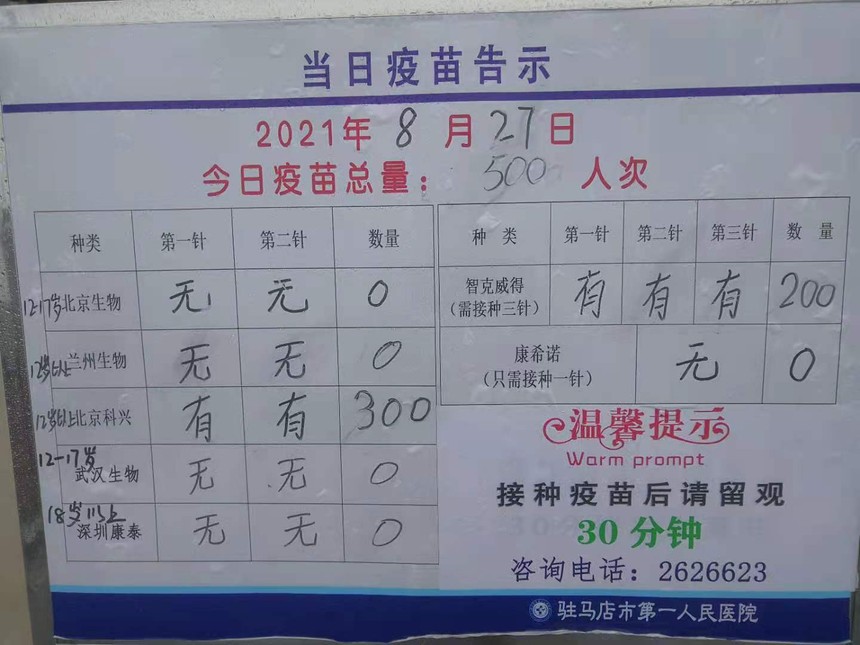 当日疫苗告示
2021年 8 月 27 日
今日疫苗总量： 500 人次
种类 第一针 第二针 数量
12-17岁 北京生物 无 无 0
12岁以上 兰州生物 无 无 0
12岁以上 北京科兴 有 有 300
12-17岁 武汉生物 无 无 0
18岁以上 深圳康泰 无 无 0
种 类 第一针 第二针 第三针 数 量
智克威得
(需接种三针) 有 有 有 200
康希诺
(只需接种一针) 无 0
温馨提示
Warm prompt
接种疫苗后请留观
30 分钟
咨询电话：2626623
驻马店市第一人民医院